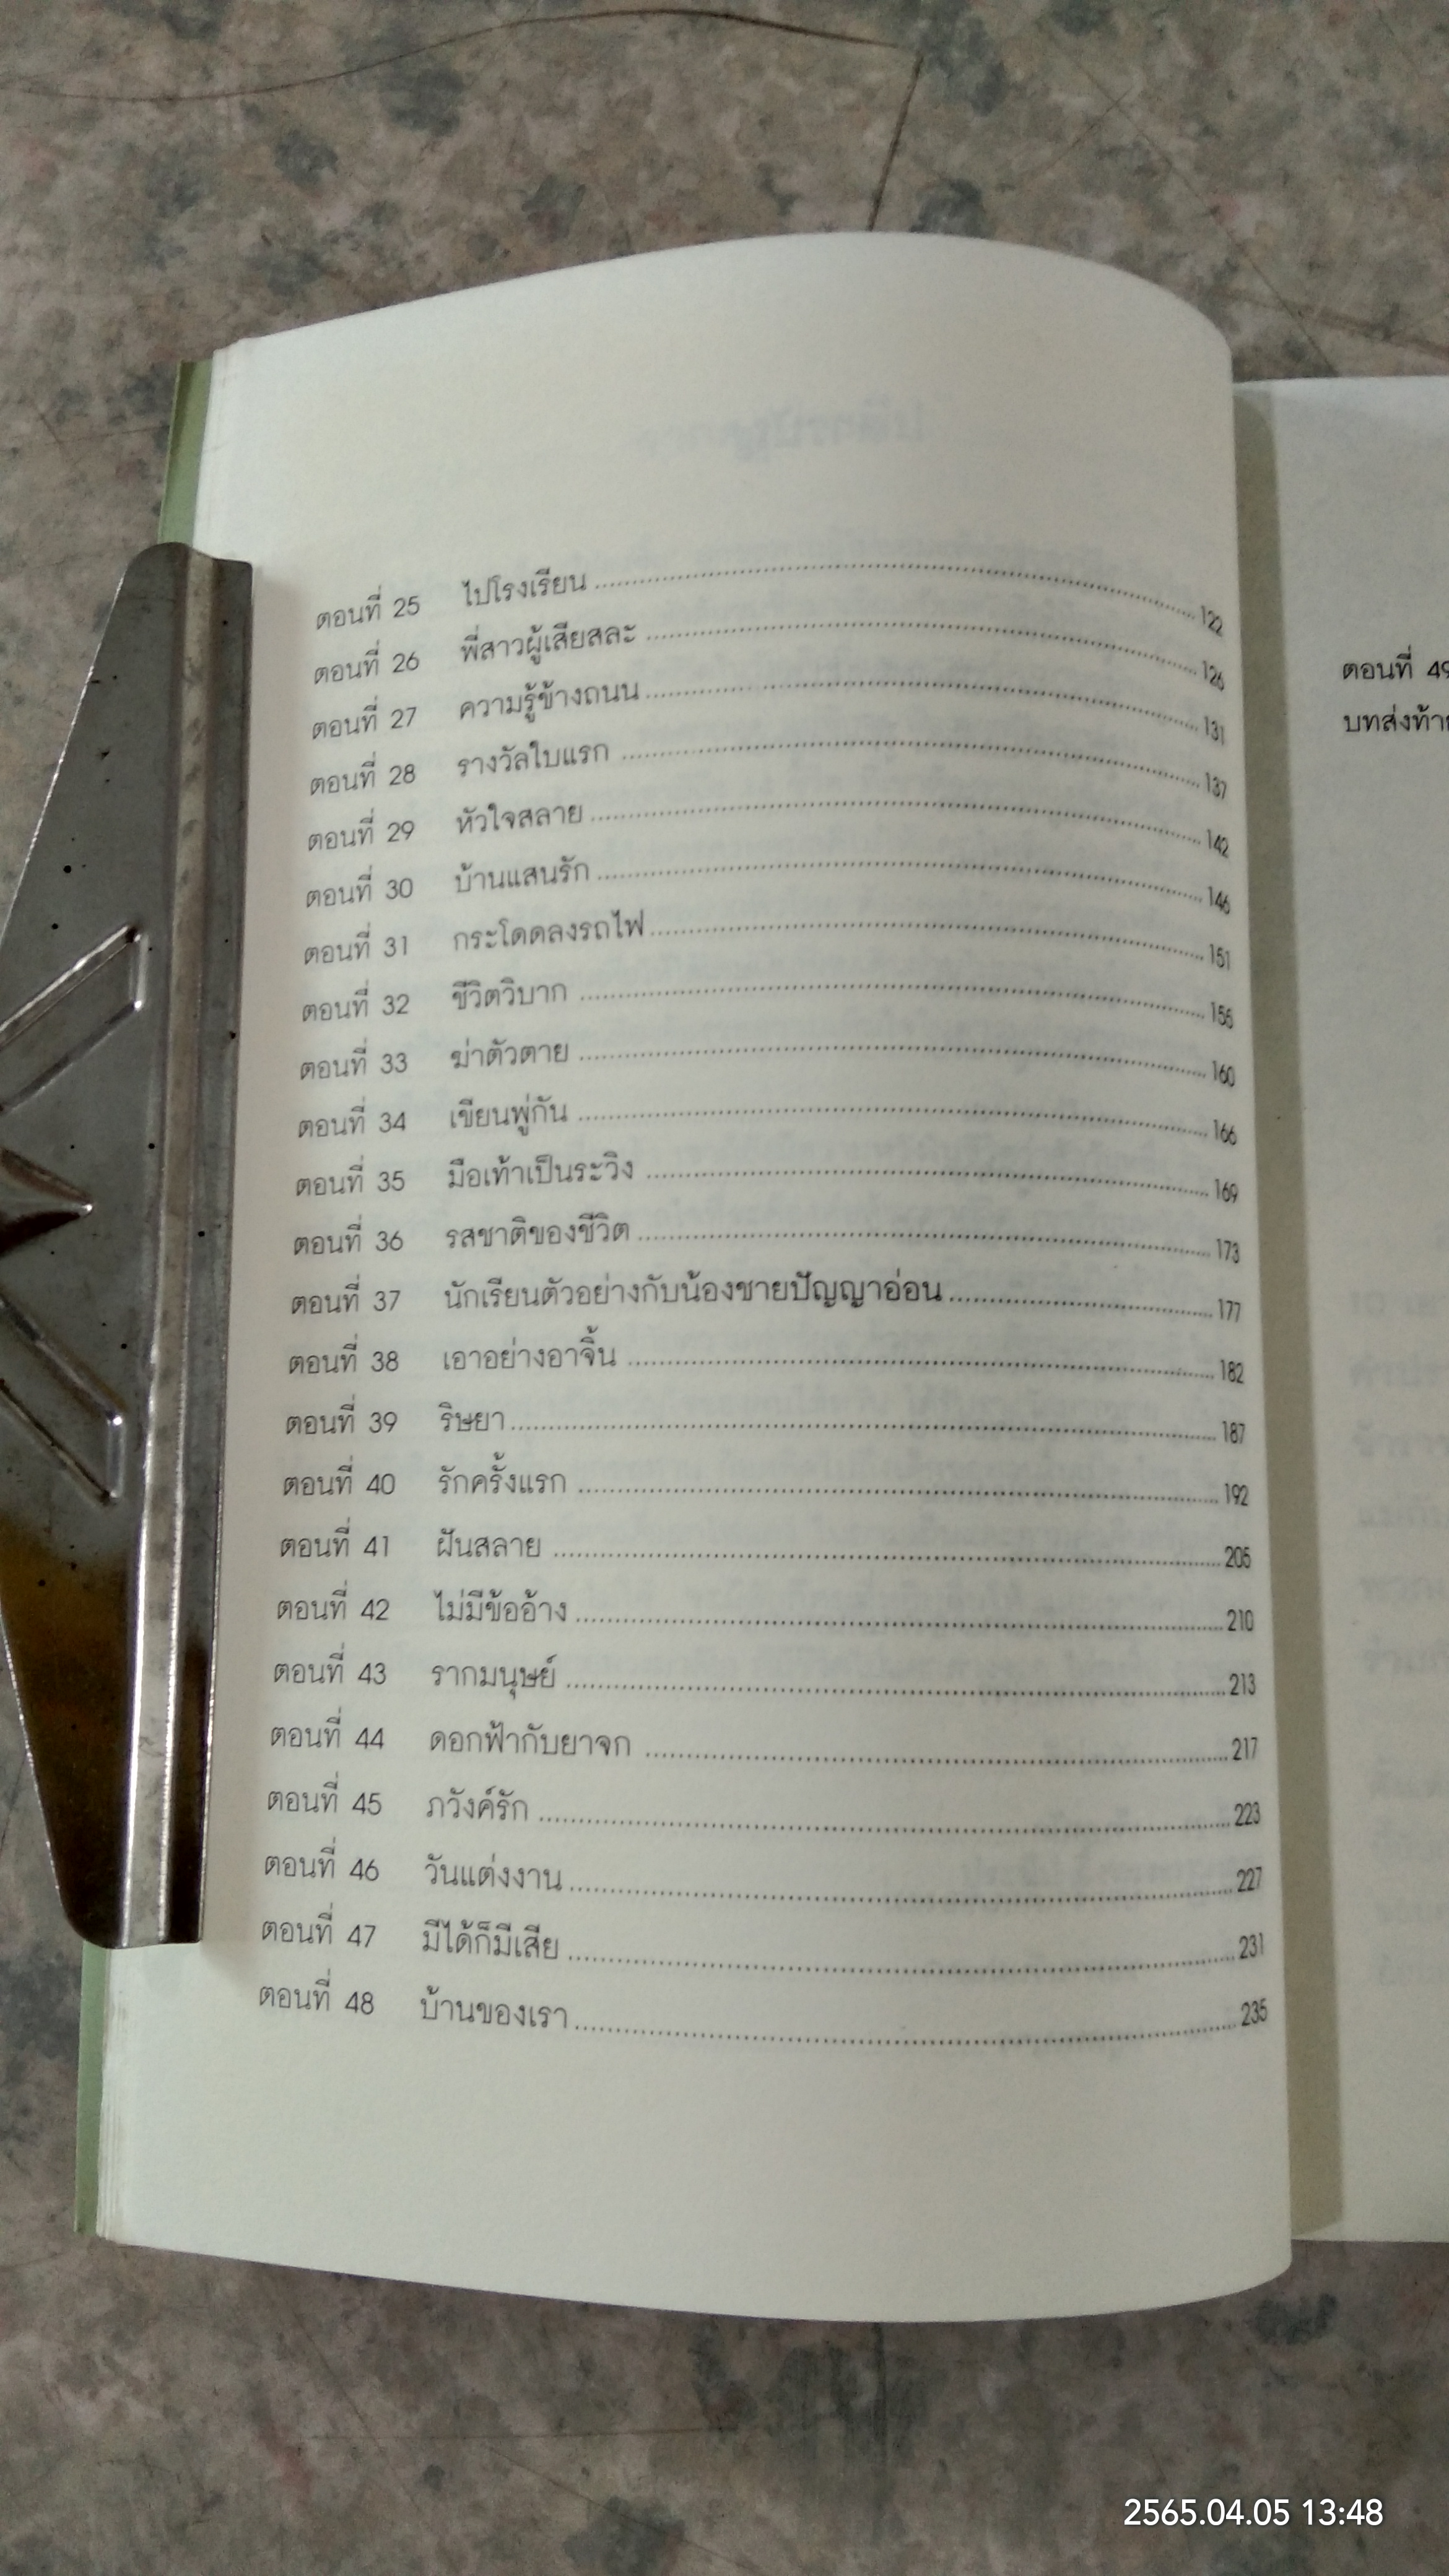 ตอนที่ 25 ไปโรงเรียน ........ 122
ตอนที่ 26 พี่สาวผู้เสียสละ ........ 126
ตอนที่ 27 ความรู้ข้างถนน ........ 131
ตอนที่ 28 รางวัลใบแรก ........ 137
ตอนที่ 29 หัวใจสลาย ........ 142
ตอนที่ 30 บ้านแสนรัก ........ 146
ตอนที่ 31 กระโดดลงรถไฟ ........ 151
ตอนที่ 32 ชีวิตวิบาก ........ 155
ตอนที่ 33 ฆ่าตัวตาย ........ 160
ตอนที่ 34 เขียนพู่กัน ........ 166
ตอนที่ 35 มือเท้าเป็นระวิง ........ 169
ตอนที่ 36 รสชาติของชีวิต ........ 173
ตอนที่ 37 นักเรียนตัวอย่างกับน้องชายปัญญาอ่อน ........ 177
ตอนที่ 38 เอาอย่างอาจิ้น ........ 182
ตอนที่ 39 ริษยา ........ 187
ตอนที่ 40 รักครั้งแรก ........ 192
ตอนที่ 41 ฝันสลาย ........ 205
ตอนที่ 42 ไม่มีข้ออ้าง ........ 210
ตอนที่ 43 รากมนุษย์ ........ 213
ตอนที่ 44 ดอกฟ้ากับยาจก ........ 217
ตอนที่ 45 ภวังค์รัก ........ 223
ตอนที่ 46 วันแต่งงาน ........ 227
ตอนที่ 47 มีได้ก็มีเสีย ........ 231
ตอนที่ 48 บ้านของเรา ........ 235
ตอนที่ 49
บทส่งท้า
2565.04.05 13:48